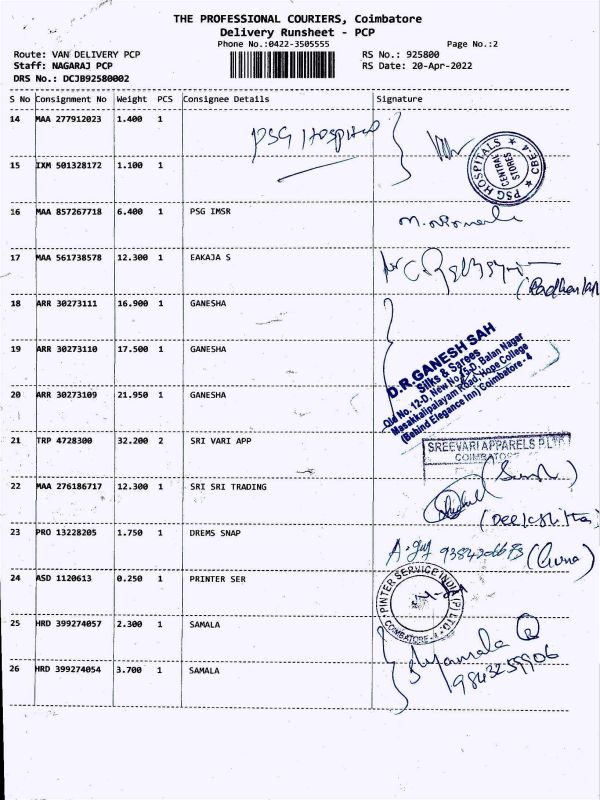 THE PROFESSIONAL COURIERS, Coimbatore
Delivery Runsheet - PCP
Phone No.:0422-3505555
Page No.:2
Route: VAN DELIVERY PCP
RS No.: 925800
Staff: NAGARAJ PCP
RS Date: 20-Apr-2022
DRS No.: DCJB92580002
S No Consignment No Weight PCS Consignee Details Signature
14 MAA 277912023 1.400 1 PSG Hospital
PSG HOSPITALS CBE-4 CENTRAL STORES
15 IXM 501328172 1.100 1
16 MAA 857267718 6.400 1 PSG IMSR
17 MAA 561738578 12.300 1 EAKAJA S
18 ARR 30273111 16.900 1 GANESHA
19 ARR 30273110 17.500 1 GANESHA
D.R.GANESH SAH
Silks & Sarees
Old No. 12-D, New No.45-D, Balan Nagar
Masakkalipalayam Road, Hope College
(Behind Elegance Inn) Coimbatore - 4
20 ARR 30273109 21.950 1 GANESHA
21 TRP 4728300 32.200 2 SRI VARI APP
SREEVARI APPARELS P LTD
COIMBATORE
22 MAA 276186717 12.300 1 SRI SRI TRADING
23 PRO 13228205 1.750 1 DREMS SNAP
(Guna)
24 ASD 1120613 0.250 1 PRINTER SER
PINTER SERVICE INDIA (P) LTD.
COIMBATORE - 4
25 HRD 399274057 2.300 1 SAMALA
Syamala
9843259906
26 HRD 399274054 3.700 1 SAMALA